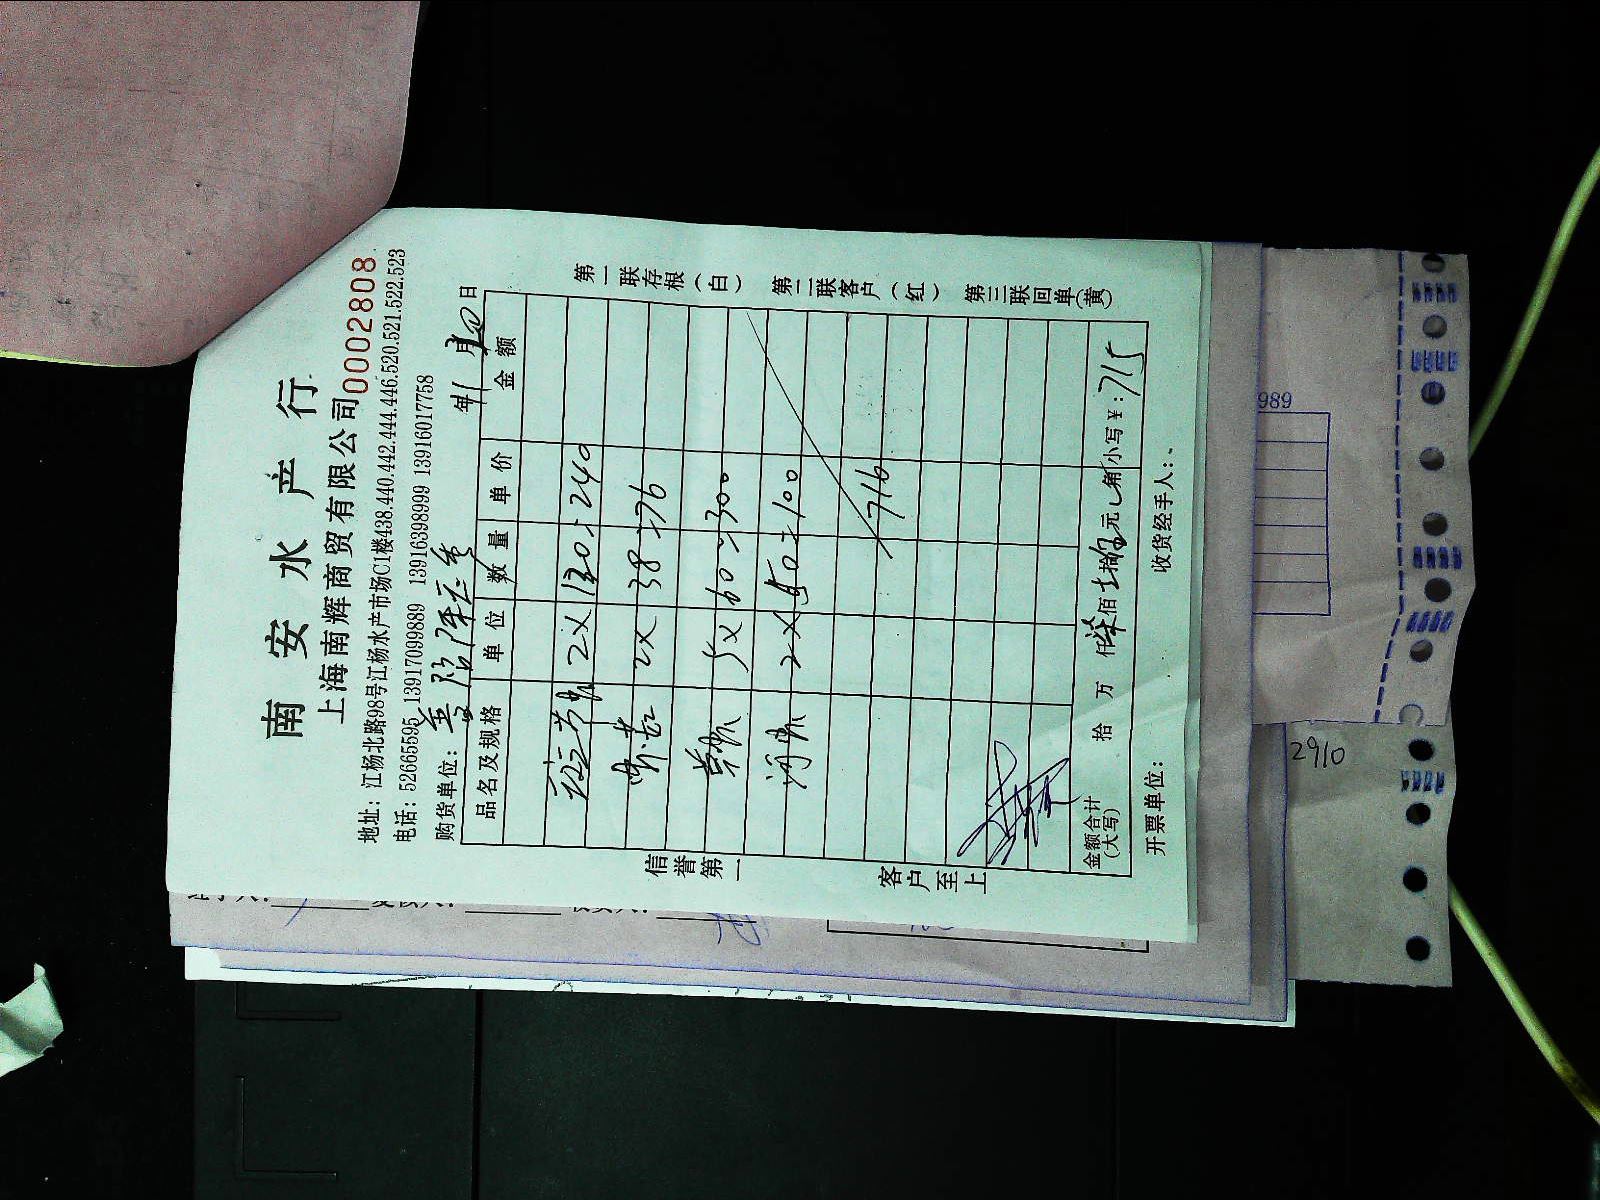 南安水产行
上海南辉商贸有限公司 0002808
地址：江杨北路98号江杨水产市场C1楼438.440.442.444.446.520.521.522.523
电话：52665595 13917099889 13916398999 13916017758
购货单位： 年 11 月 30 日
品名及规格 单位 数量 单价 金额
2X 120=240
2X 38=76
5X 60=300
2X 50=100
716
金额合计 拾 万 仟 柒佰 拾 元 角 小写￥：715
(大写)
开票单位： 收货经手人：
信誉第一
客户至上
第一联存根（白）
第二联客户（红）
第三联回单（黄）
989
2910